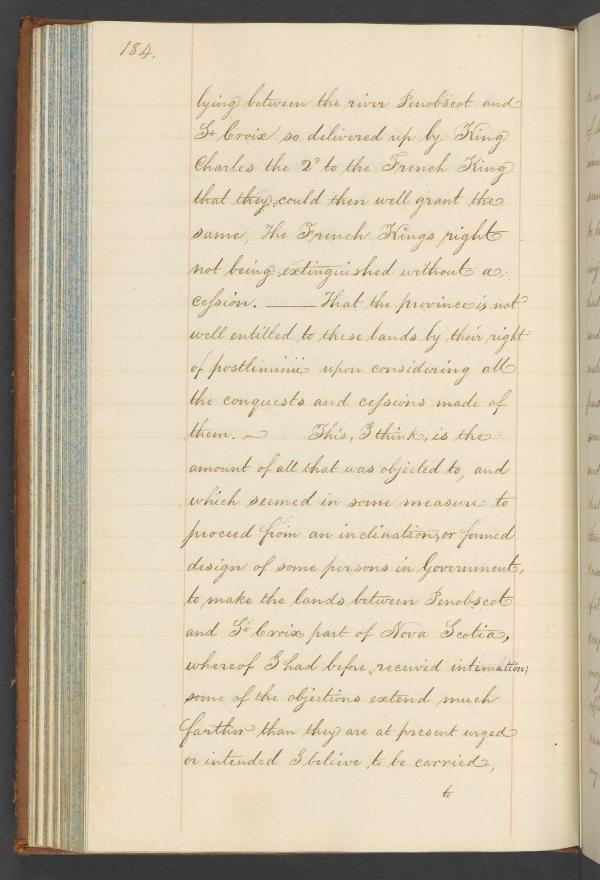 184.
lying between the river Penobscot and
St Croix so delivered up by King
Charles the 2d to the French King
that they could then well grant the
same, the French Kings right
not being extinguished without a
cession. —— That the province is not
well entitled to these lands by their right
of postliminii upon considering all
the conquests and cessions made of
them. — This, I think, is the
amount of all that was objected to, and
which seemed in some measure to
proceed from an inclination, or formed
design of some persons in Government,
to make the lands between Penobscot
and St Croix part of Nova Scotia,
whereof I had before received intimation;
some of the objections extend much
farther than they are at present urged
or intended I believe to be carried,
to